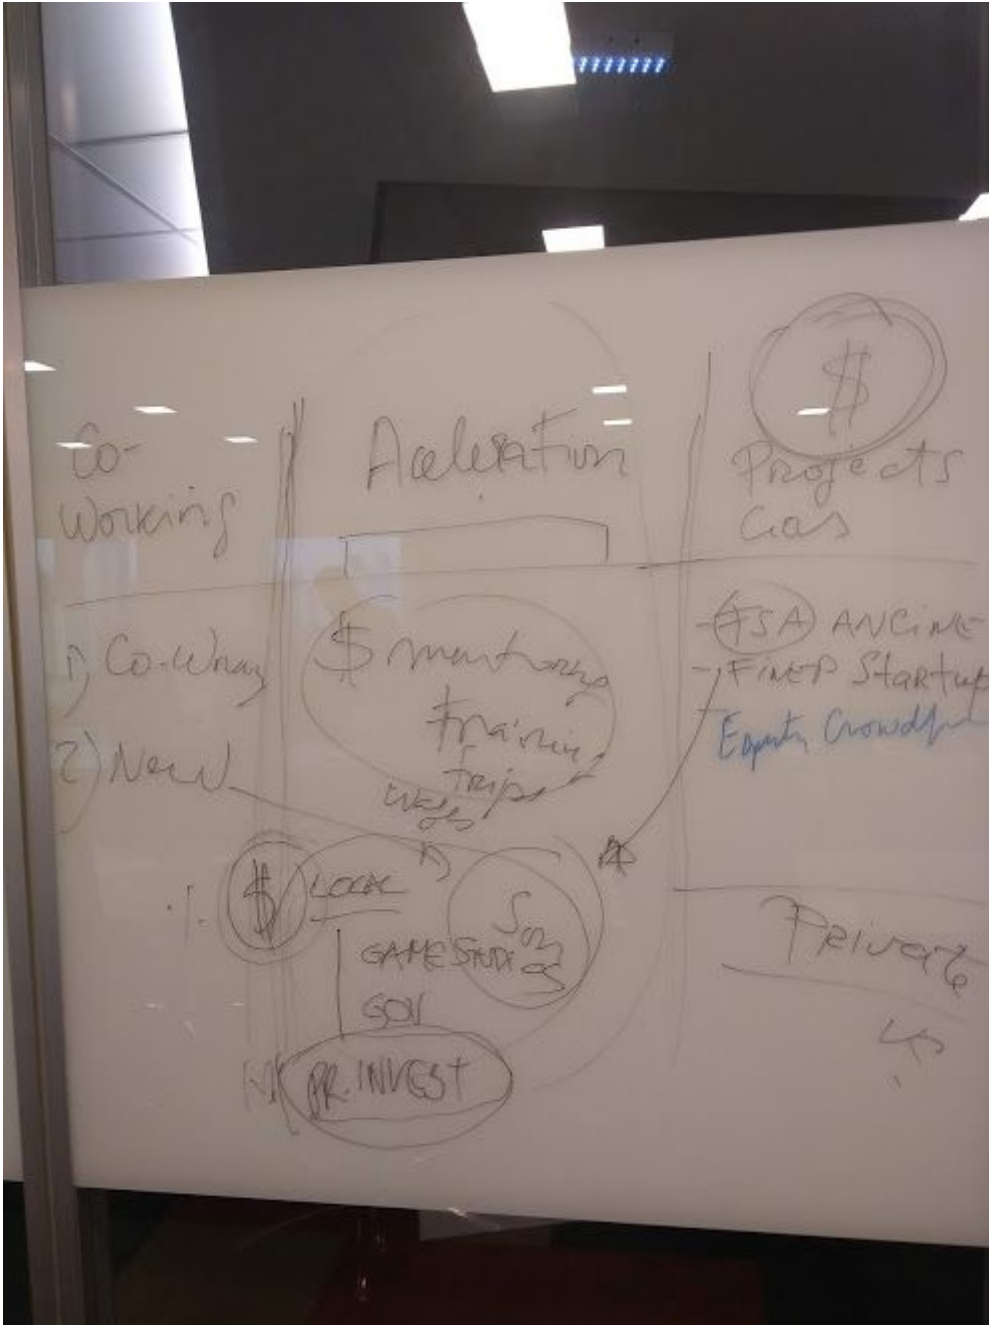 Co-
Working
Aceleration
$
Projects
1) Co-Working
2) New
$ mentoring
training
trips
wages
- FSA ANCINE
- FINEP Startup
Equity Crowdf
$ LOCAL
GAME STUDIOS
GOV
PR. INVEST
Private